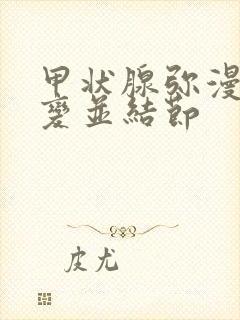 甲状腺弥漫
变并結節
皮尤